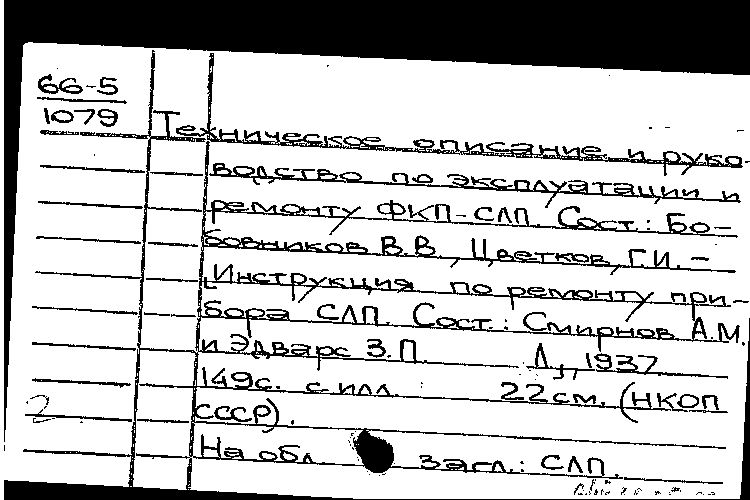 66-5
1079
Техническое описание и руко-
водство по эксплуатации и
ремонту ФКП-СЛП. Сост.: Бо-
бовников В.В., Цветков, Г.И. –
Инструкция по ремонту при-
бора СЛП. Сост.: Смирнов А.М.
и Эдварс З.П. Л., 1937.
149с. с илл. 22см. (НКОП
СССР).
На обл. загл.: СЛП.
2